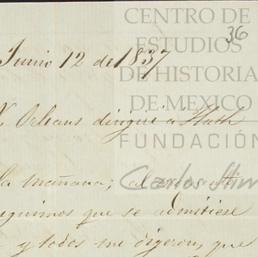 CENTRO DE
36
ESTUDIOS
Junio 12 de 1837
DE HISTORIA
DE MEXICO
Orleans dirigí a
FUNDACIÓN
la mañana; al
Carlos Slim
seguimos que se admitiese
y todos me digeron, que